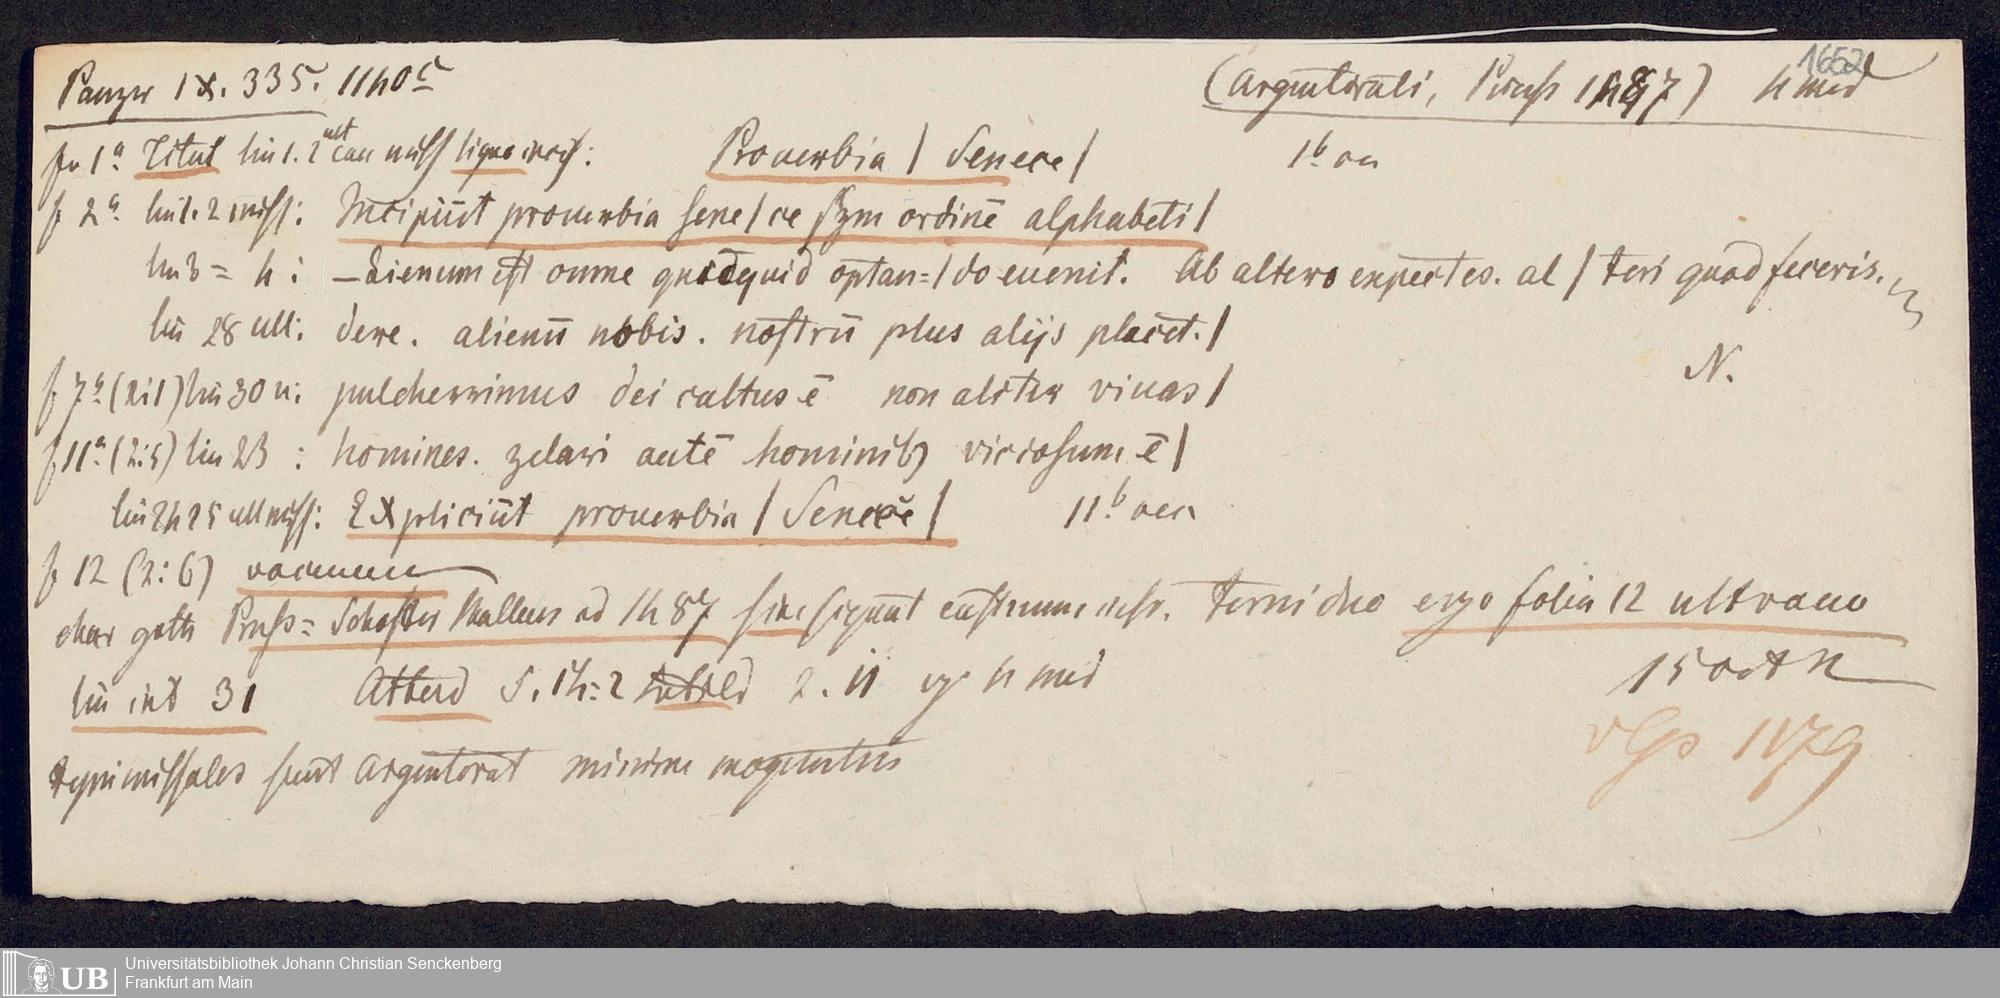 Panzer IX. 335. 1140c (Argentorati, Pruss 1487) 4 min 1652
fo 1a Titul lin 1. 2 ult cau miss ligno incis: Prouerbia / Senece / 1b vac
f 2a lin 1. 2 miss: Incipiūt prouerbia sene / ce ordinē alphabeti /
lin 3 = 4 : Alienum est omne quicquid optan= / do euenit. Ab altero expectes. al / teri quod feceris.
lin 28 ult: dere. alienū nobis. nostrū plus alijs placet. /
N.
f 7a (2:1) lin 30 u: pulcherrimus dei cultus ē non aliter viuas /
f 11a (2:5) lin 23 : homines. zelari autē hominib9 viciosum ē /
lin 24 25 ult miss: Expliciūt prouerbia / Senece / 11b vac
f 12 (2:6) vacuum
char goth Pruss = ad 1487 sine signat custum nesr. Terni duo ergo folia 12 ult vacu
lin int 31 Attend S. 14:2 2. II 4 min
15 oct N
typi missales sunt Argentorat minime moguntiis
vGs 1479
Universitätsbibliothek Johann Christian Senckenberg
UB
Frankfurt am Main